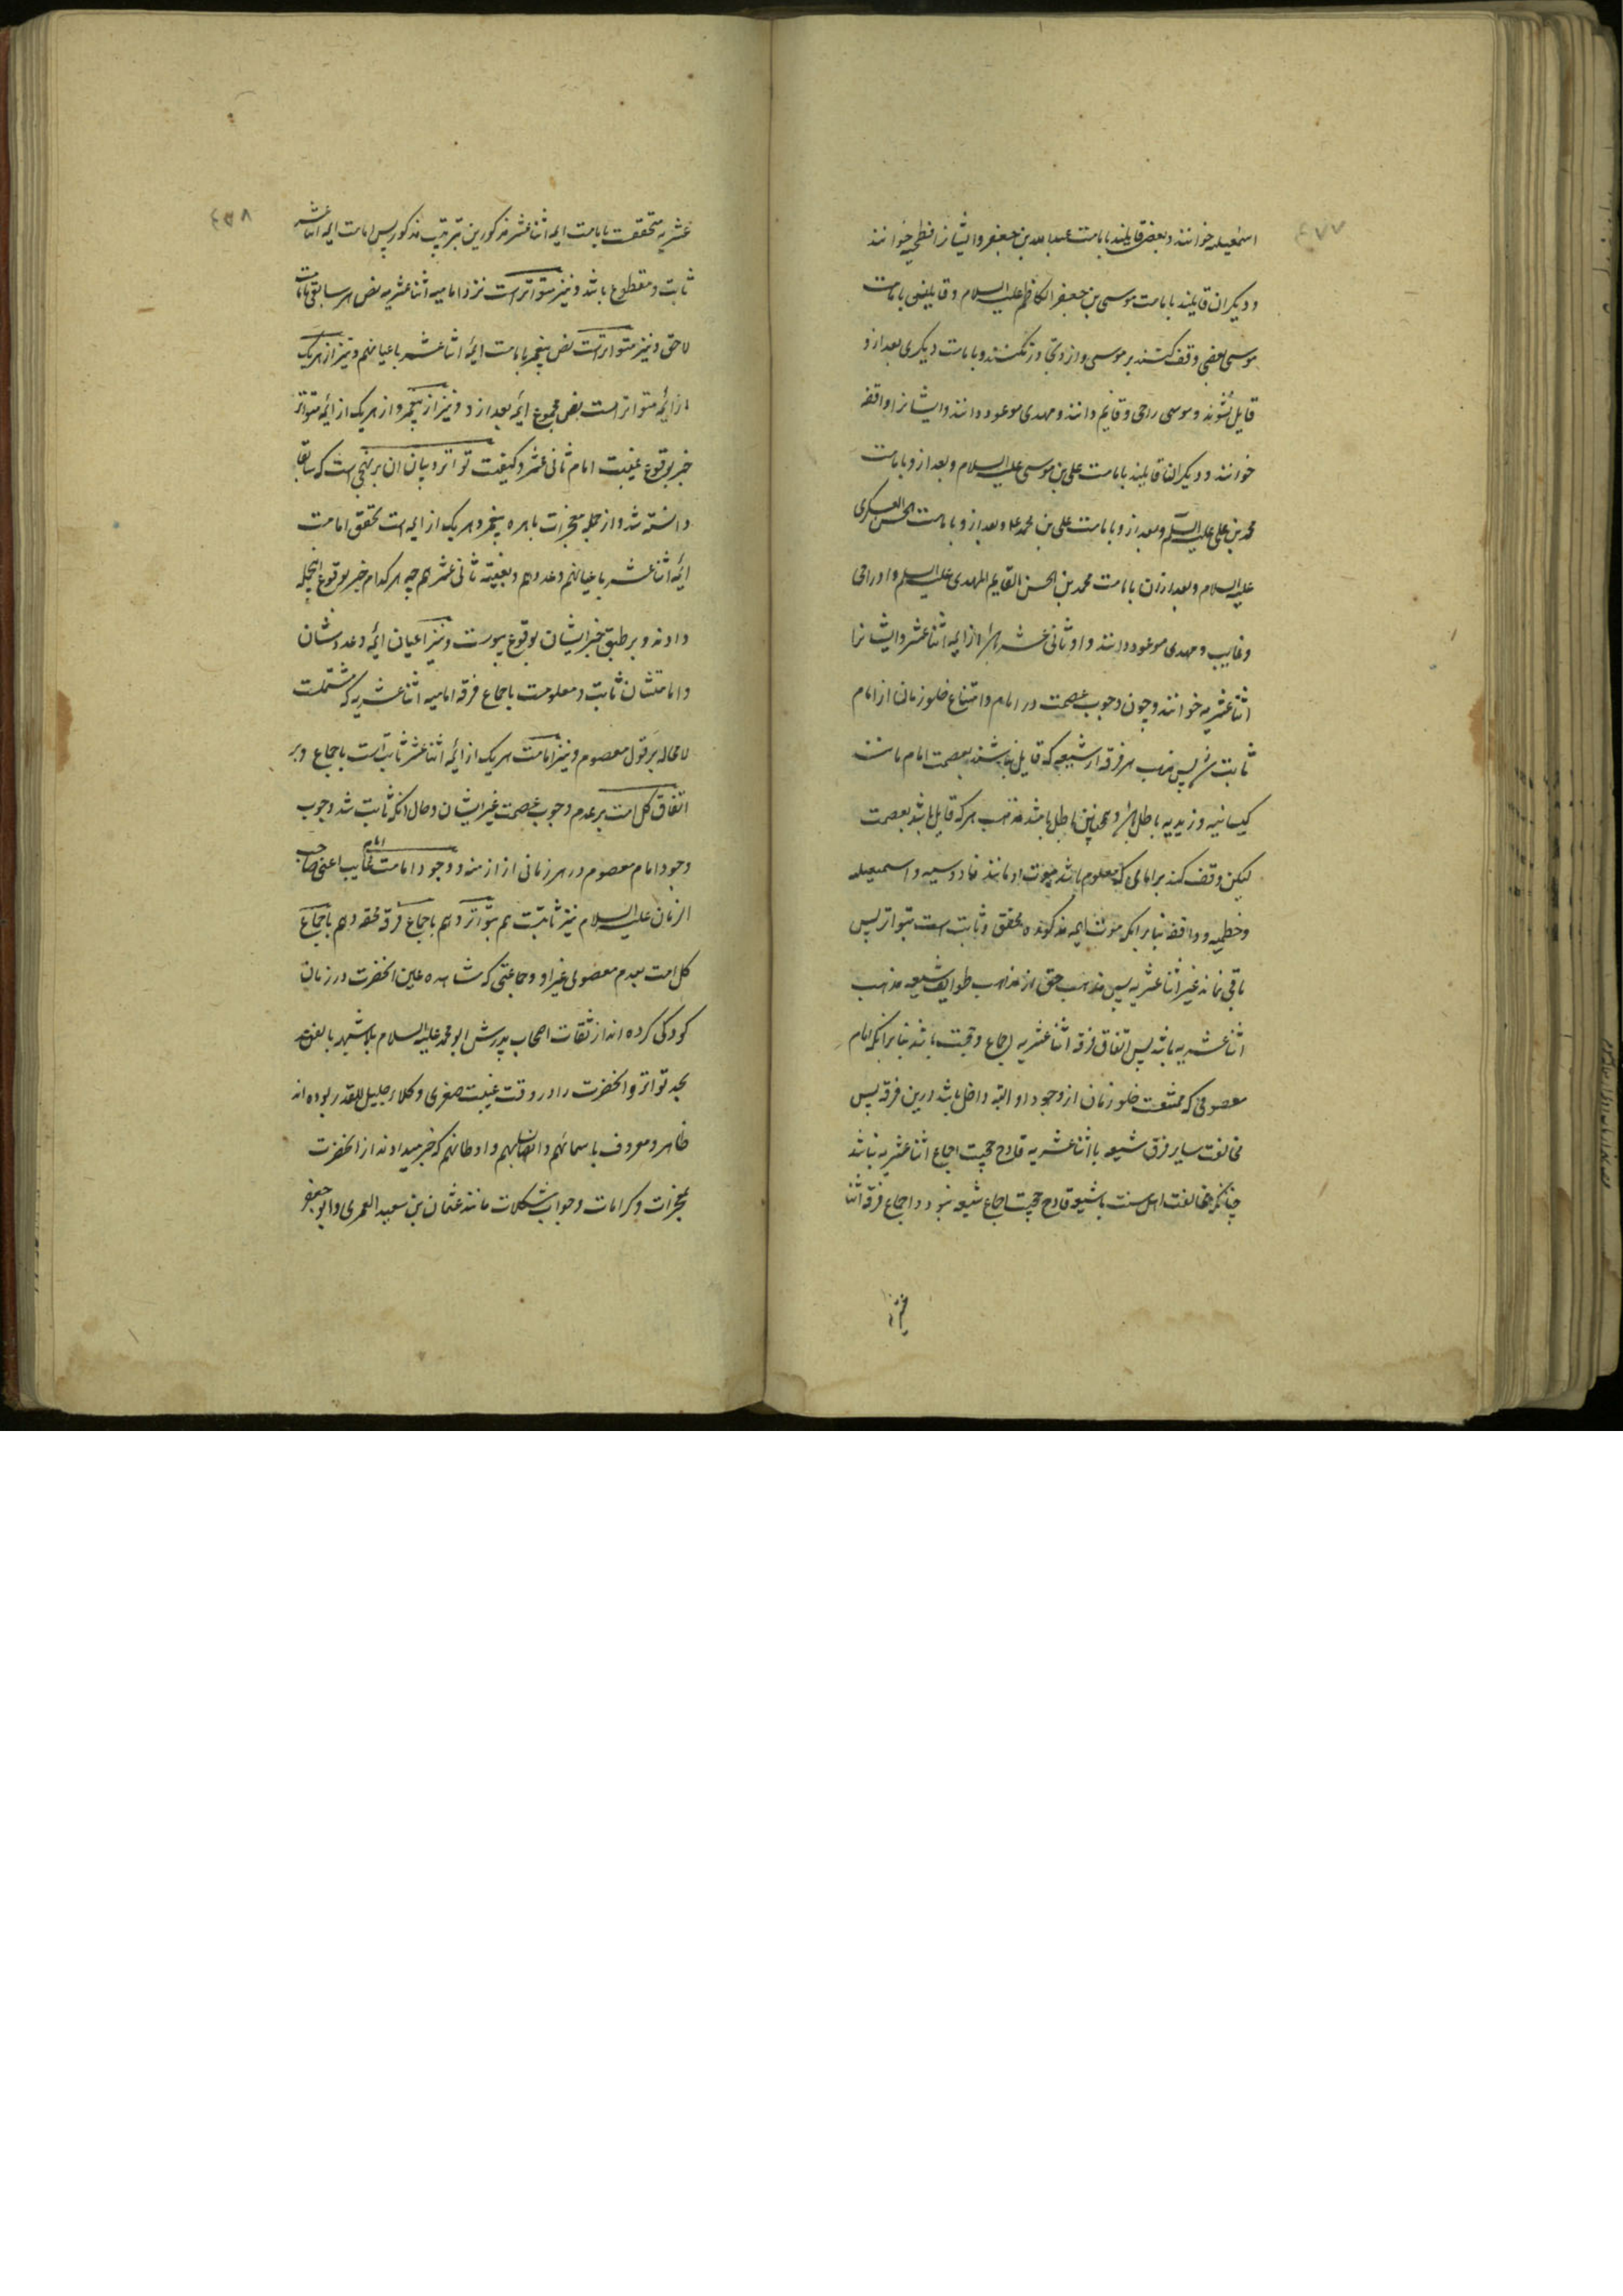 اسمعیلیه خوانند و بعضی قایلند بامامت عبدالله بن جعفر و ایشانرا فطحیه خوانند
و دیگران قایلند بامامت موسی بن جعفر الکاظم علیه السلام و قایلین بامامت
موسی بعضی وقف کنند بر موسی و ازو تجاوز نکنند و بامامت دیگری بعد ازو
قایل نشوند و موسی را حی و قایم دانند و مهدی موعود دانند و ایشانرا واقفه
خوانند و دیگران قایلند بامامت علی بن موسی علیه السلام و بعد ازو بامامت
محمد بن علی علیه السلم و بعد ازو بامامت علی بن محمد و بعد ازو بامامت الحسن العسکری
علیه السلام و بعد ازان بامامت محمد بن الحسن القایم المهدی علیه السلم و او را حی
و غایب و مهدی موعود دانند و او ثانی عشر باشد از ایمه اثناعشر و ایشانرا
اثناعشریه خوانند و چون وجوب عصمت در امام و امتناع خلو زمان از امام
ثابت شد پس مذهب هر فرقه از شیعه که قایل نباشند بعصمت امام مانند
کیسانیه و زیدیه باطل باشد و همچنین باطل باشد مذهب هر که قایل باشد بعصمت
لیکن وقف کند بر امامی که معلوم باشد موت او مانند ناووسیه و اسمعیلیه
و فطحیه و واقفه بنا برانکه موت ایمه مذکوره محقق و ثابت است بتواتر پس
باقی نماند غیر اثناعشریه پس مذهب حق از مذاهب طوایف شیعه مذهب
اثناعشریه باشد پس اتفاق فرقه اثناعشریه اجماع و حجت باشد بنا برانکه امام
معصومی که ممتنعست خلو زمان از وجود او البته داخل باشد درین فرقه پس
مخالفت سایر فرق شیعه با اثناعشریه قادح حجیت اجماع اثناعشریه نباشد
چنانکه مخالفت اهل سنت با شیعه قادح حجیت اجماع شیعه نبود و اجماع فرقه اثنا
عشریه متحققست بامامت ایمه اثناعشر مذکورین بترتیب مذکور پس امامت ایمه اثناعشر
ثابت و مقطوع باشد و نیز متواتر است نزد امامیه اثناعشریه نص هر سابقی بامامت
لاحق و نیز متواتر است نص پیغمبر بامامت ایمه اثناعشر باعیانهم و نیز از هر یک
از ایمه متواتر است نص مجموع ایمه بعد ازو و نیز از پیغمبر و از هر یک از ایمه متواتر
خبر بوقوع غیبت امام ثانی عشر و کیفیت تواتر و بیان ان بر نهجی است که سابقا
دانسته شد و از جمله معجزات باهره پیغمبر و هر یک از ایمه است تحقق امامت
ایمه اثناعشر باعیانهم و عددهم و بغیبته ثانی عشرهم چه هر کدام خبر بوقوع اینجمله
دادند و بر طبق خبر ایشان بوقوع پیوست و نیز اعیان ایمه و عددشان
و امامتشان ثابت و معلومست باجماع فرقه امامیه اثناعشریه که مشتملست
لامحاله بر قول معصوم و نیز امامت هر یک از ایمه اثناعشر ثابت است باجماع و بر
اتفاق کل امت بر عدم وجوب عصمت غیر ایشان و حال انکه ثابت شد وجوب
وجود امام معصوم در هر زمانی از ازمنه و وجود امامت امام غایب اعنی صاحب
الزمان علیه السلام نیز ثابتست هم بتواتر و هم باجماع فرقه محقه و هم باجماع
کل امت بعدم معصومی غیر او و جماعتی که مشاهده عین انحضرت در زمان
کودکی کرده اند از ثقات اصحاب پدرش ابو محمد علیه السلام بلاشبهه بالغند
بحد تواتر و انحضرت را در وقت غیبت صغری وکلاء جلیل القدر بوده اند
ظاهر و معروف باسمائهم و انسابهم و اوطانهم که خبر میدادند از انحضرت
بمعجزات و کرامات و جواب مشکلات مانند عثمان بن سعید العمری و ابو جعفر